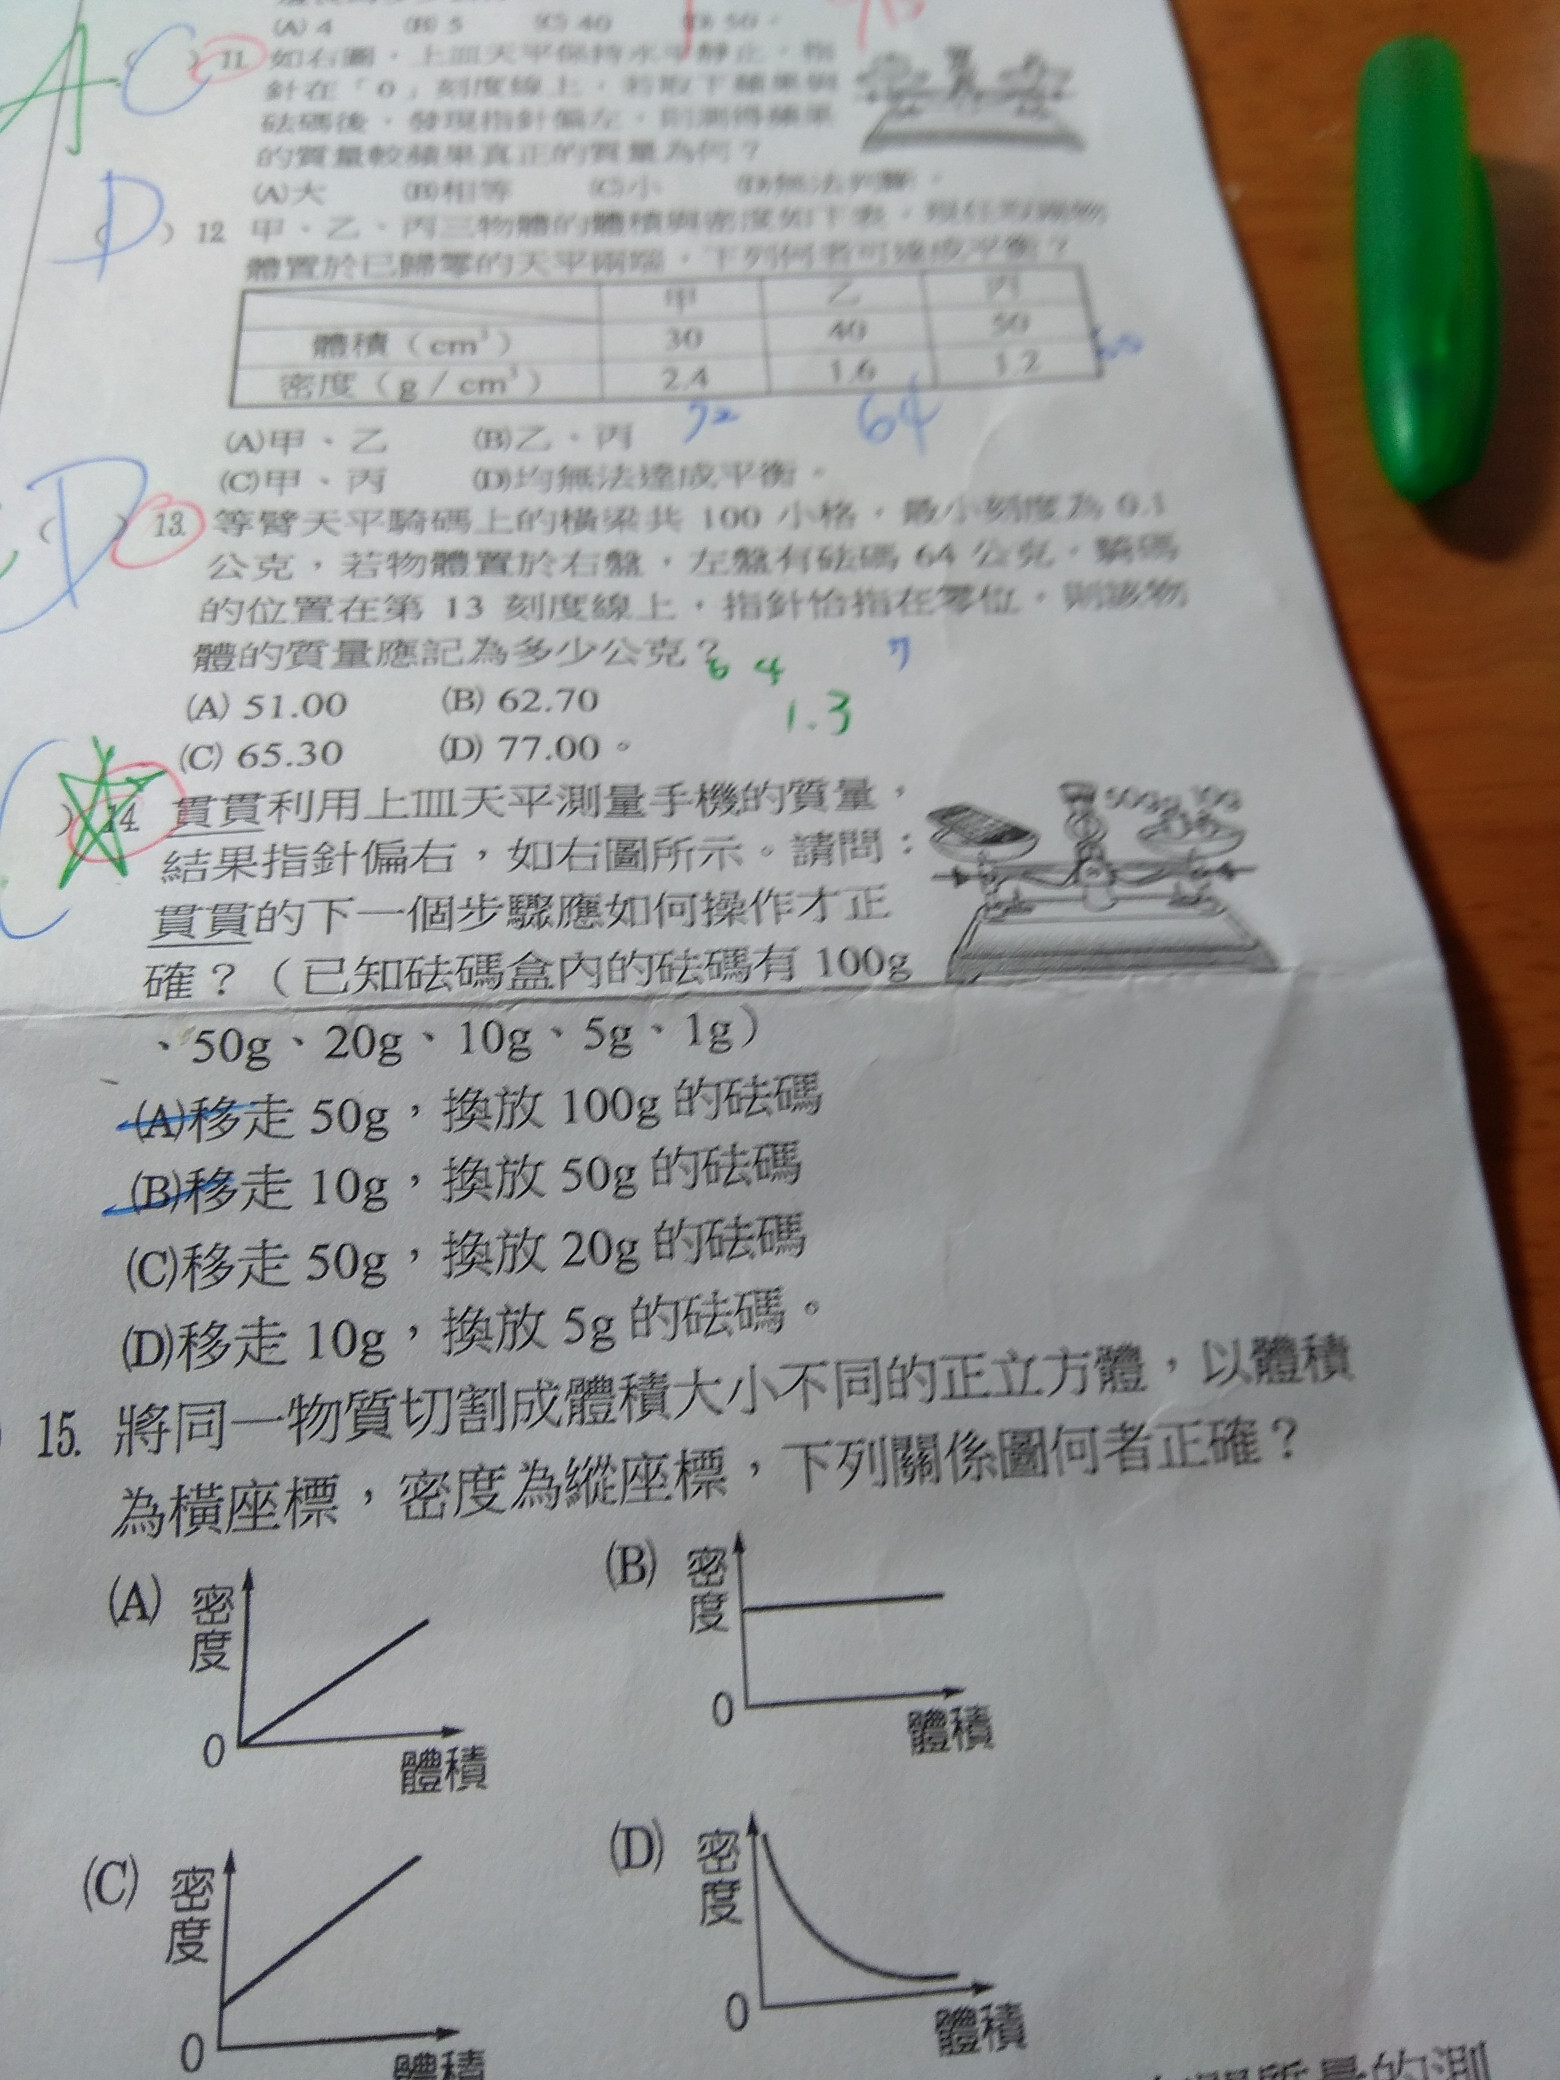 (A) 4 (B) 5 (C) 40 (D) 50。
A C ( ) 11. 如右圖,上皿天平保持水平靜止,指
針在「0」刻度線上,若取下蘋果與
砝碼後,發現指針偏左,則測得蘋果
的質量較蘋果真正的質量為何?
(A)大 (B)相等 (C)小 (D)無法判斷。
D ( ) 12. 甲、乙、丙三物體的體積與密度如下表,現任取兩物
體置於已歸零的天平兩端,下列何者可達成平衡?
甲 乙 丙
體積(cm³) 30 40 50
密度(g/cm³) 2.4 1.6 1.2 60
72 64
(A)甲、乙 (B)乙、丙
(C)甲、丙 (D)均無法達成平衡。
D ( ) 13. 等臂天平騎碼上的橫梁共 100 小格,最小刻度為 0.1
公克,若物體置於右盤,左盤有砝碼 64 公克,騎碼
的位置在第 13 刻度線上,指針恰指在零位,則該物
體的質量應記為多少公克?
64
1.3
(A) 51.00 (B) 62.70
(C) 65.30 (D) 77.00。
) 14. 貫貫利用上皿天平測量手機的質量,
結果指針偏右,如右圖所示。請問:
貫貫的下一個步驟應如何操作才正
確?(已知砝碼盒內的砝碼有 100g
、50g、20g、10g、5g、1g)
50g 10g
(A)移走 50g,換放 100g 的砝碼
(B)移走 10g,換放 50g 的砝碼
(C)移走 50g,換放 20g 的砝碼
(D)移走 10g,換放 5g 的砝碼。
15. 將同一物質切割成體積大小不同的正立方體,以體積
為橫座標,密度為縱座標,下列關係圖何者正確?
(A) 密度 0 體積
(B) 密度 0 體積
(C) 密度 0 體積
(D) 密度 0 體積
質量的測